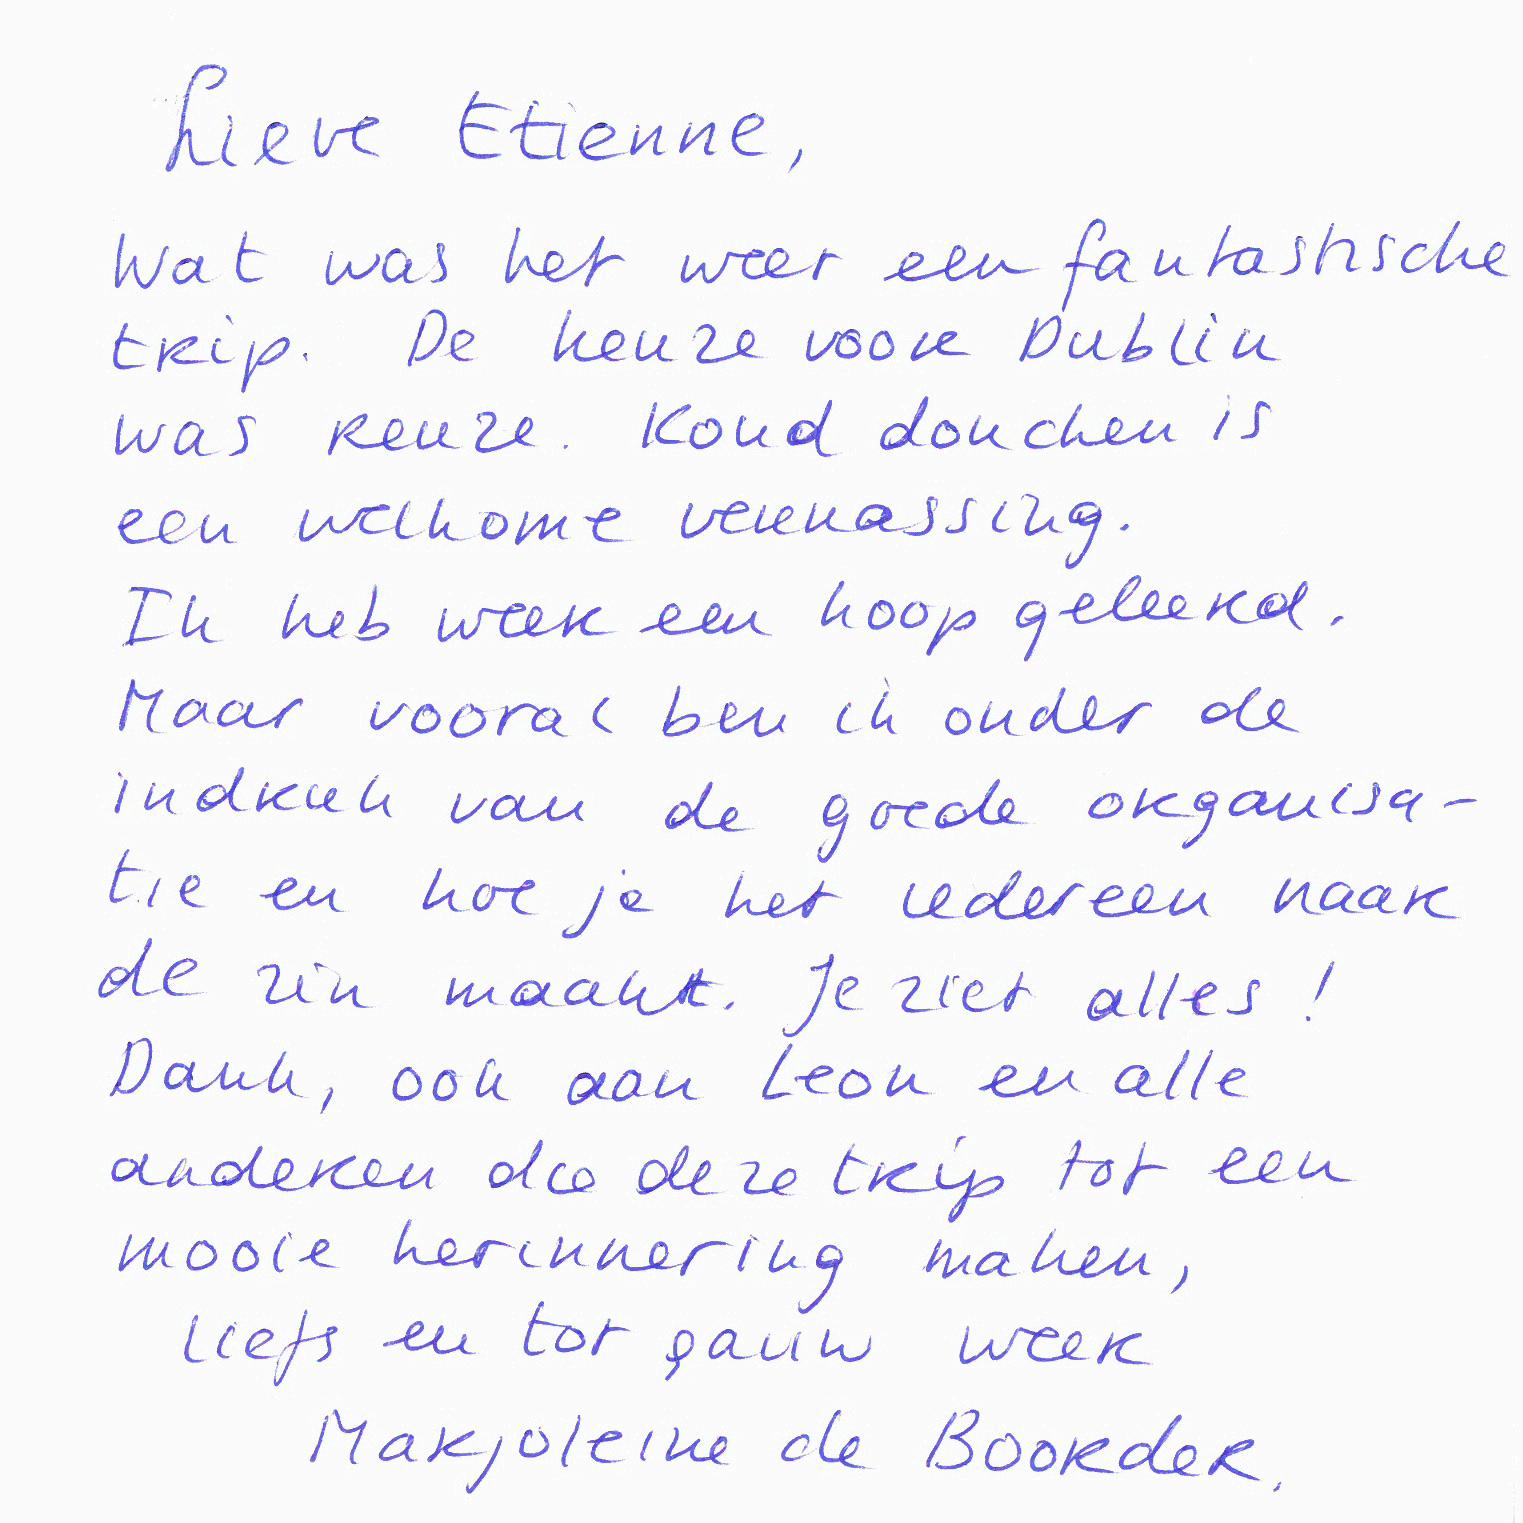 Lieve Etienne,
Wat was het weer een fantastische
trip. De keuze voor Dublin
was reuze. Koud douchen is
een welkome verrassing.
Ik heb weer een hoop geleerd.
Maar vooral ben ik onder de
indruk van de goede organisa-
tie en hoe je het iedereen naar
de zin maakt. Je ziet alles!
Dank, ook aan Leon en alle
anderen die deze trip tot een
mooie herinnering maken,
liefs en tot gauw weer
Marjoleine de Boorder.